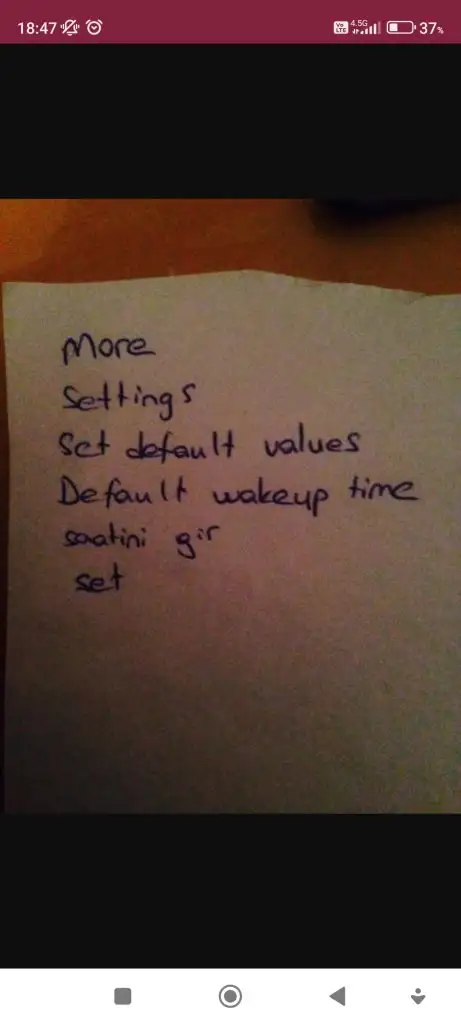 18:47 4.5G 37%
Vo LTE
More
Settings
Set default values
Default wakeup time
saatini gir
set